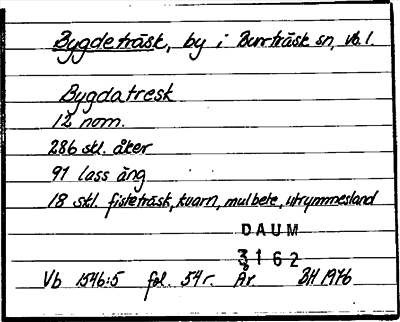 Bygdeträsk, by i Burträsk sn, Vb. l.
Bygdatresk
12 nom.
286 skl. åker
91 lass äng
18 skl. fisketräsk, kvarn, mulbete, utrymmesland
DAUM
3162
Vb 1546:5 fol. 54 r. År BH 1976